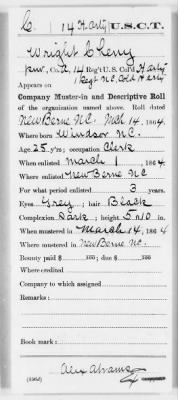 C. 14 H. Arty. U.S.C.T.
Wright Cherry
Co. 14 Reg't U.S. Col'd H. Arty
Reg't N.C. Col'd H Arty
Appears on
Company Muster-in and Descriptive Roll
of the organization named above. Roll dated
New Berne N.C. Mch 14, 1864.
Where born Windsor N.C.
Age 25 y'rs; occupation Clerk
When enlisted March 1, 1864
Where enlisted New Berne NC
For what period enlisted 3 years.
Eyes Grey; hair Black
Complexion Dark; height 5 ft. 10 in.
When mustered in March 14, 1864
Where mustered in New Berne N.C.
Bounty paid $ 100; due $ 100
Where credited
Company to which assigned
Remarks:
Book mark:
Alex Abrams